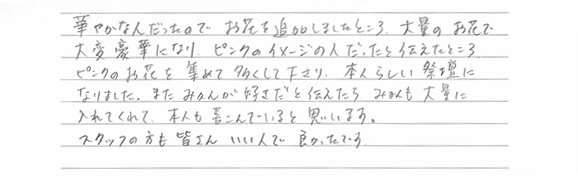 華やかなんだったので お花を追加しましたところ、大量の お花で
大変豪華になり、ピンクのイメージの人だったと伝えたところ
ピンクのお花を 集めて 多くして下さり、本人らしい 祭壇に
なりました。また みかんが好きだと伝えたら みかんも 大量に
入れてくれて、本人も 喜こんでいると 思います。
スタッフの方も 皆さん いい人で 良かったです